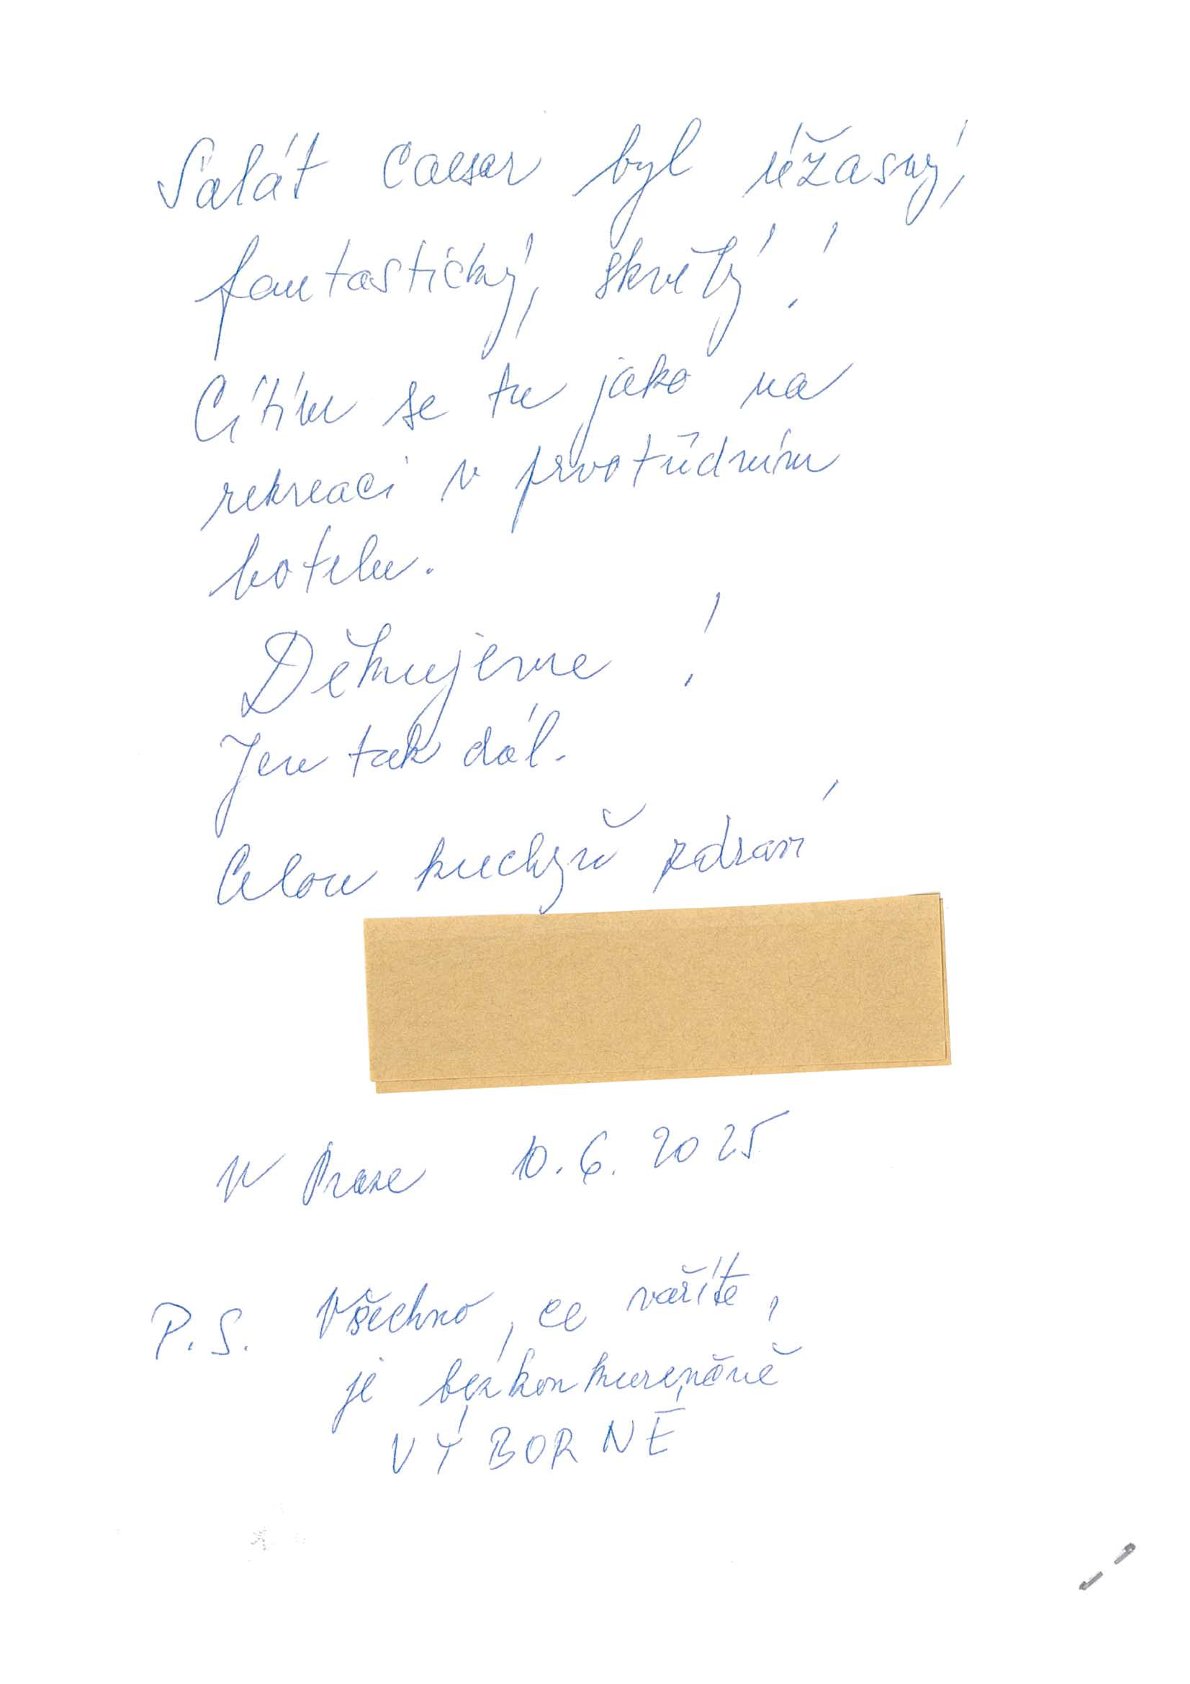 Salát Caesar byl úžasný,
fantastický, skvělý!
Cítím se tu jako na
rekreaci v prvotřídním
hotelu.
Děkujeme!
Jen tak dál.
Celou kuchyň zdraví
V Praze 10.6.2025
P.S. Všechno, co vaříte,
je bezkonkurenčně
VÝBORNÉ